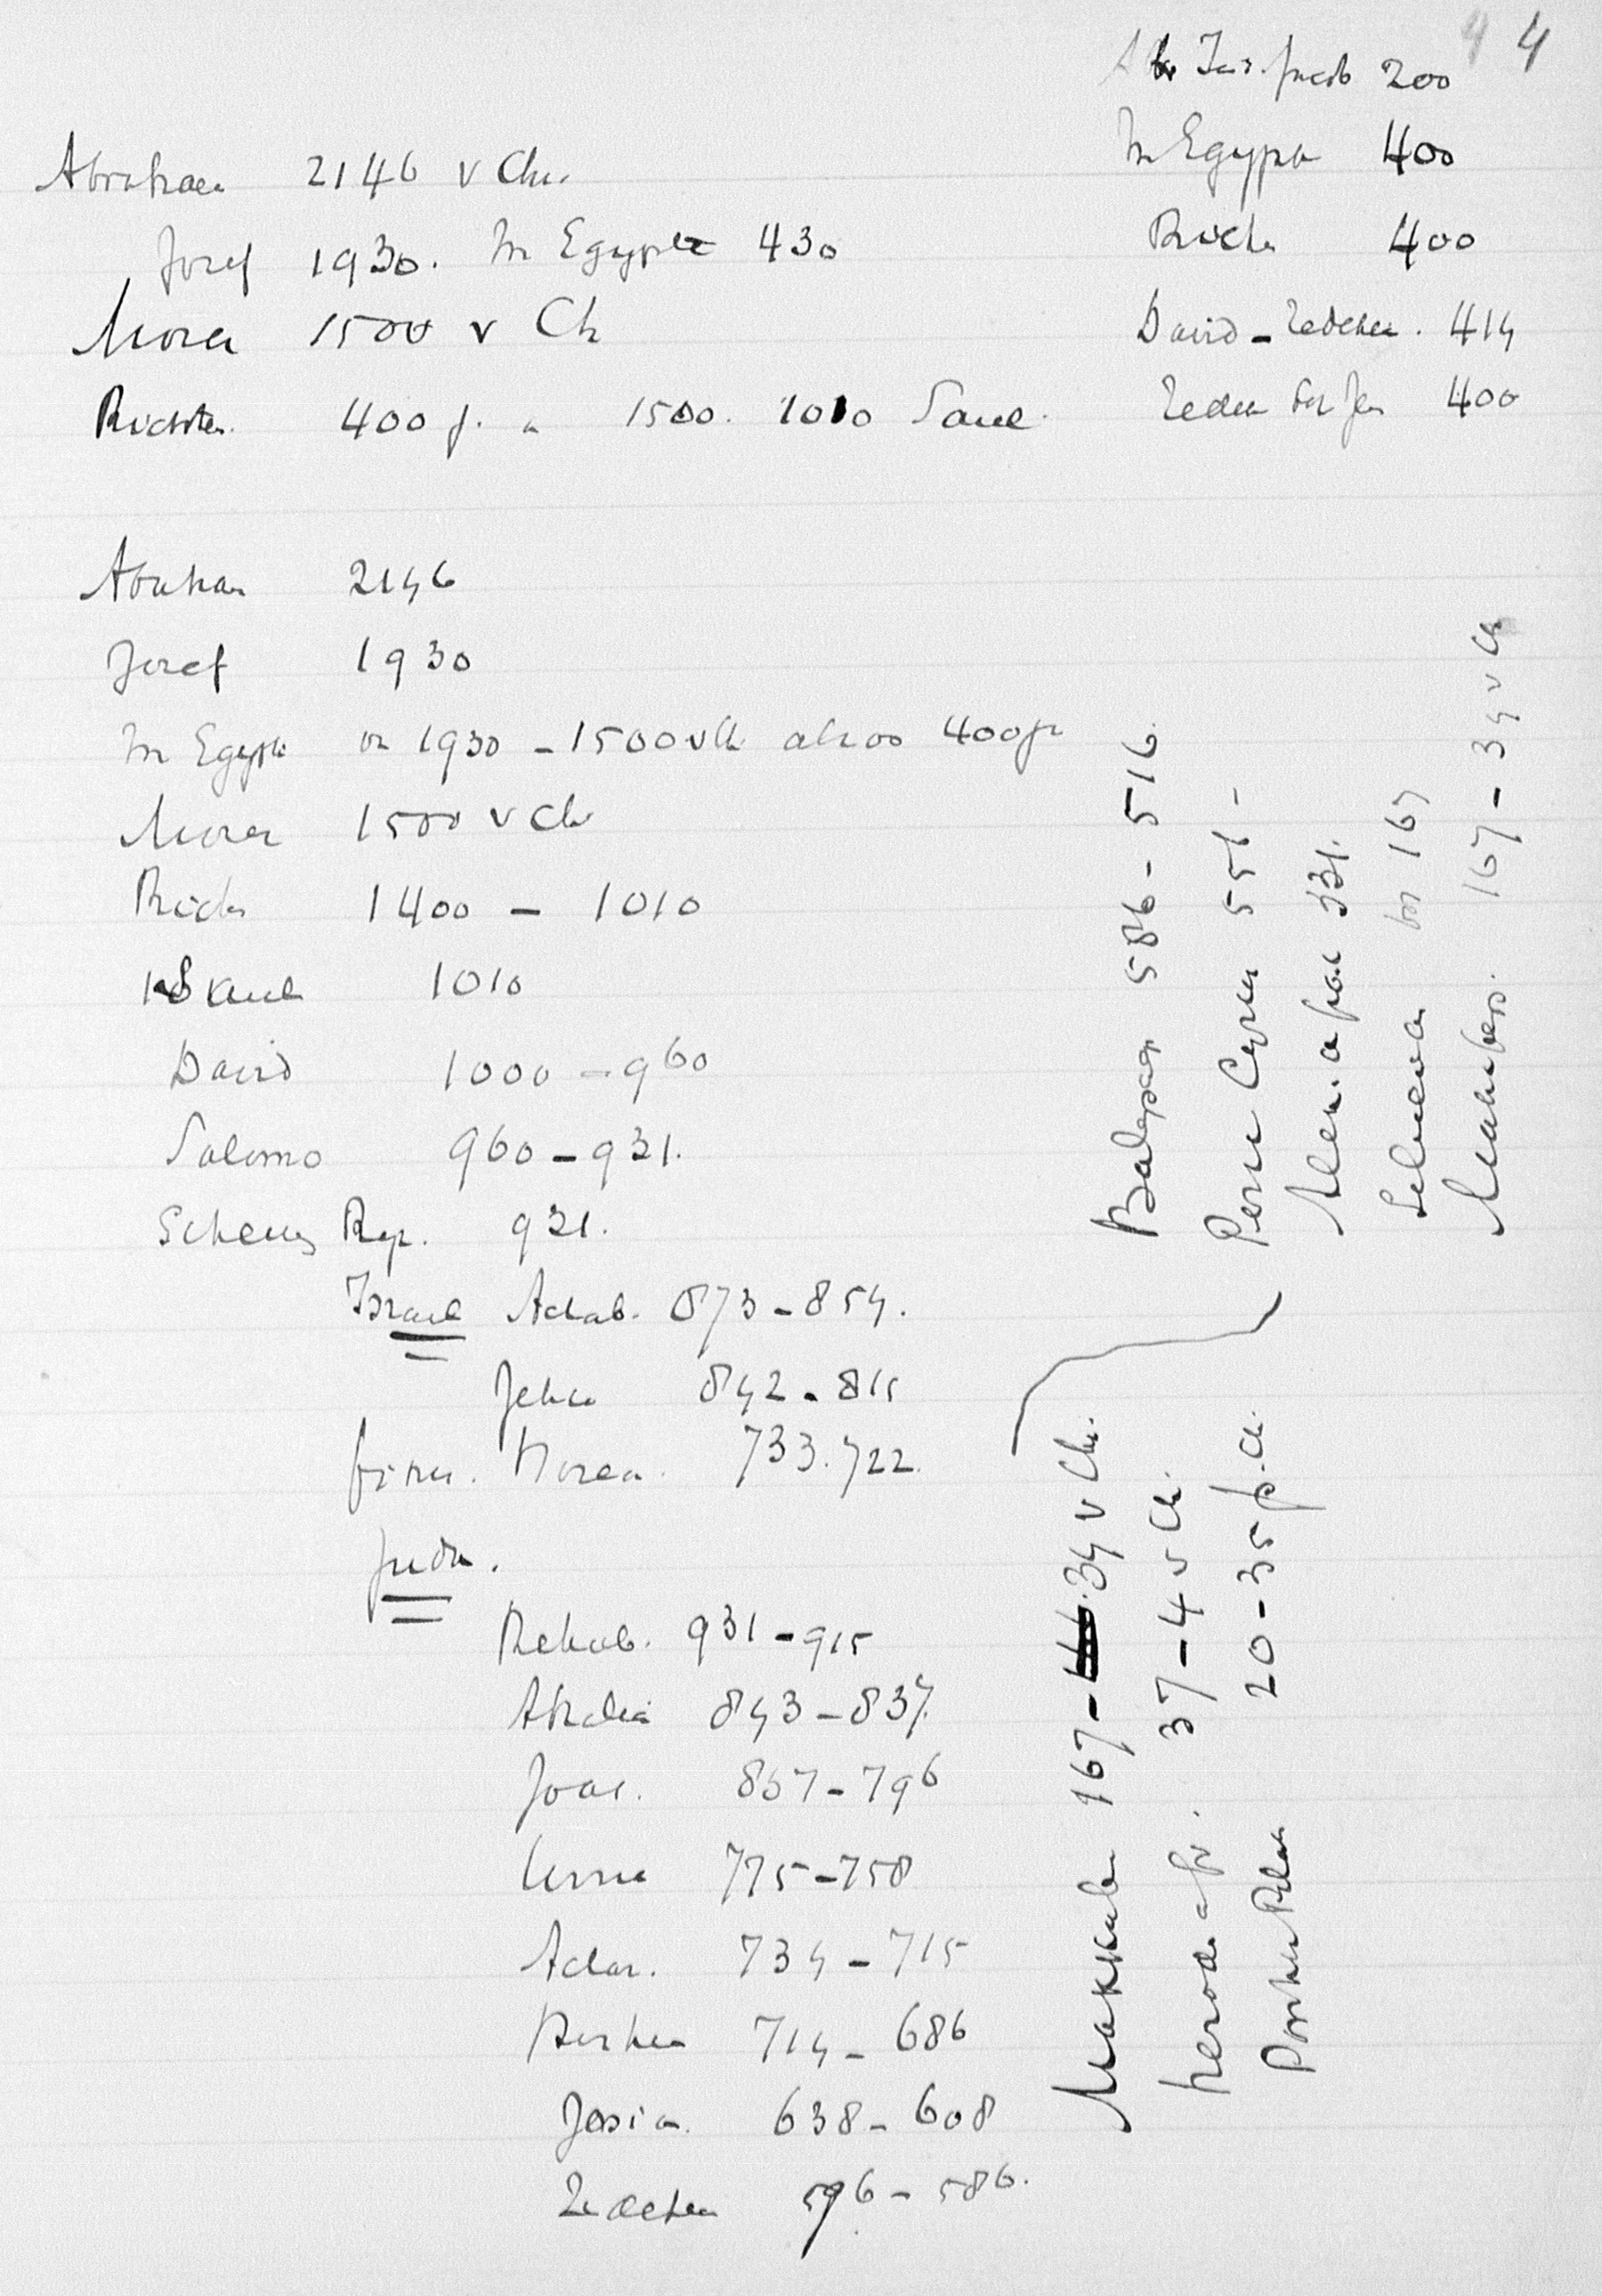 4 4
Abr Is. Jacob 200
In Egypte 400
Richt. 400
David - Zedekia. 414
Zedek tot Jez 400
Abraham 2146 v Chr.
Jozef 1930. In Egypte 430
Mozes 1500 v Ch
Richter. 400 j. 1500. 1010 Saul.
Abraham 2146
Jozef 1930
In Egypte van 1930 - 1500 v Ch alzoo 400 jr
Mozes 1500 v Ch
Richt. 1400 - 1010
Saul 1010
David 1000 - 960
Salomo 960 - 931.
Scheur Rijk. 931.
Israel Achab. 873 - 854.
Jehu 842 - 815
Hosea. 733. 722.
Juda.
Rehab. 931 - 915
Athalia 843 - 837.
Joas. 837 - 796
Ussia 775 - 758
Achaz. 734 - 715
Hiskia 714 - 686
Josia. 638 - 608
Zedekia 596 - 586.
Balschap 586 - 516.
Perzie Cyrus 551 -
Alex. a 331.
Seleuciden tot 167
Makkabeen. 167 - 34 v Ch
Makkabeen 167 - 34 v Chr.
herodes a gr. 37 - 4 v Chr.
Pontius Pilatus 20 - 35 p. Ch.